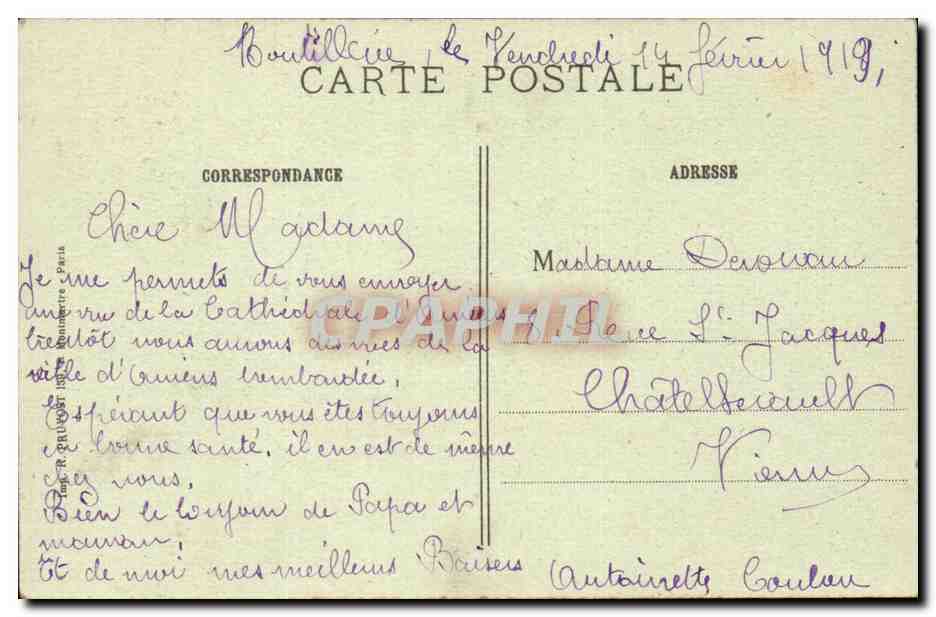 Boutillerie, le Vendredi 14 février 1919,
CARTE POSTALE
CORRESPONDANCE
Chère Madame
Je me permets de vous envoyer
une vue de la Cathédrale d'Amiens
bientôt nous aurons des vues de la
ville d'Amiens bombardée.
Espérant que vous êtes toujours
en bonne santé, il en est de même
chez nous.
Bien le bonjour de Papa et
maman,
Et de moi mes meilleurs Baisers
ADRESSE
Madame
Rue St Jacques
Châtellerault
Vienne
Antoinette Coulon
Imp. R. PRUVOST Montmartre Paris
CPAPHIL